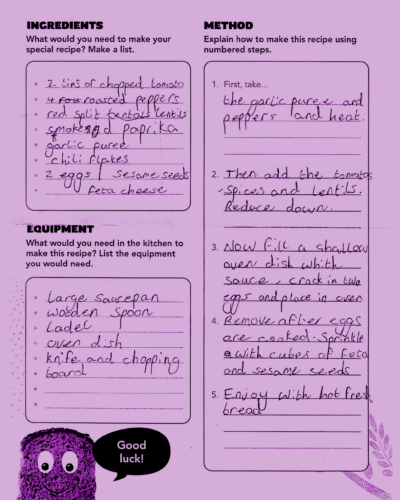 INGREDIENTS
What would you need to make your
special recipe? Make a list.
2 tins of chopped tomato
4 roasted peppers
red split lentils
smoked paprika
garlic puree
chili flakes
2 eggs | sesame seeds
feta cheese
EQUIPMENT
What would you need in the kitchen to
make this recipe? List the equipment
you would need.
Large saucepan
wooden spoon
Ladel
oven dish
knife and chopping
board
Good
luck!
METHOD
Explain how to make this recipe using
numbered steps.
1. First, take...
the garlic puree and
peppers and heat.
2. Then add the tomatos
spices and lentils.
Reduce down.
3. Now fill a shallow
oven dish whith
sauce, crack in two
eggs and place in oven
4. Remove after eggs
are cooked. Sprinkle
with cubes of feta
and sesame seeds
5. Enjoy with hot fresh
bread